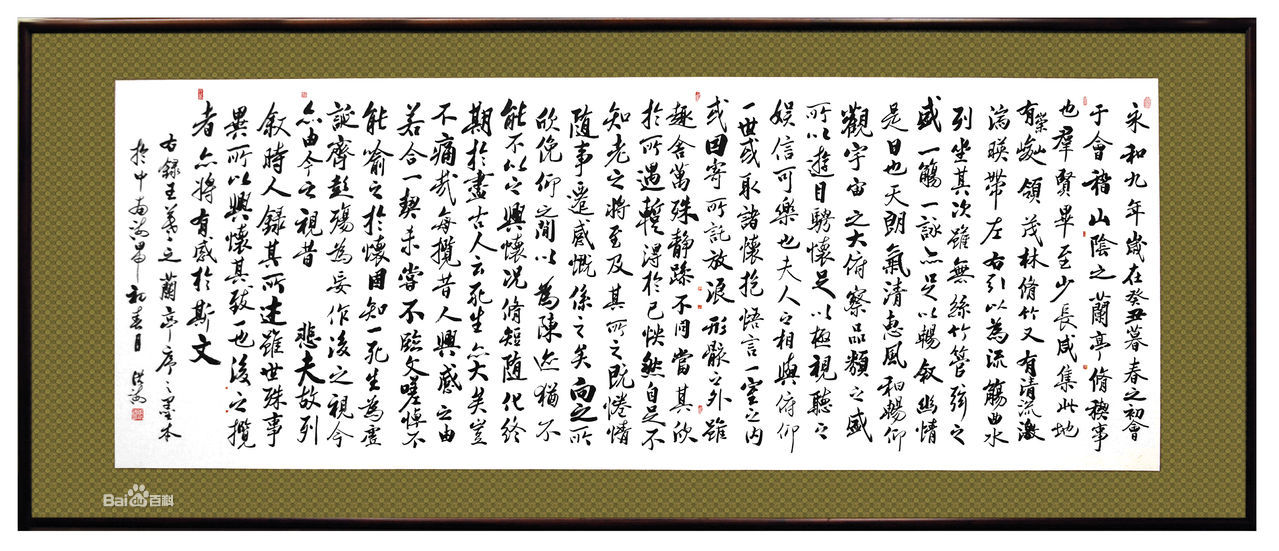 永和九年歲在癸丑暮春之初會
于會稽山陰之蘭亭脩稧事
也羣賢畢至少長咸集此地
有崇山峻領茂林脩竹又有清流激
湍暎帶左右引以為流觴曲水
列坐其次雖無絲竹管弦之
盛一觴一詠亦足以暢敘幽情
是日也天朗氣清惠風和暢仰
觀宇宙之大俯察品類之盛
所以遊目騁懷足以極視聽之
娛信可樂也夫人之相與俯仰
一世或取諸懷抱悟言一室之內
或因寄所託放浪形骸之外雖
趣舍萬殊靜躁不同當其欣
於所遇暫得於己怏然自足不
知老之將至及其所之既惓情
隨事遷感慨係之矣向之所
欣俛仰之間以為陳迹猶不
能不以之興懷況脩短隨化終
期於盡古人云死生亦大矣豈
不痛哉每攬昔人興感之由
若合一契未嘗不臨文嗟悼不
能喻之於懷固知一死生為虛
誕齊彭殤為妄作後之視今
亦由今之視昔 悲夫故列
敘時人錄其所述雖世殊事
異所以興懷其致一也後之攬
者亦將有感於斯文
右錄王羲之蘭亭序之墨本
於中南海 初春月
Baidu百科